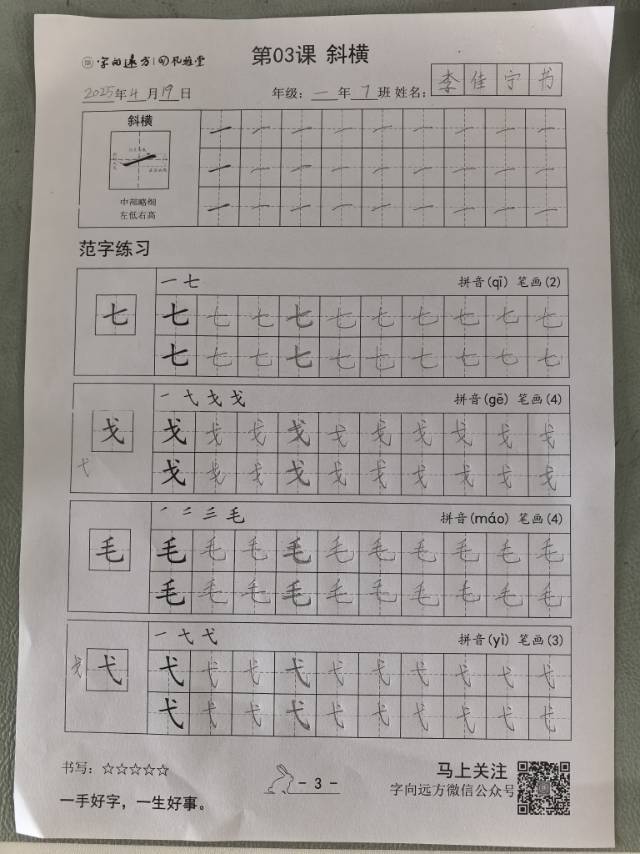 字向远方 凤雅堂
第03课 斜横
2025年4月19日 年级：一年7班 姓名：李佳宁书
斜横
中部略细
左低右高
范字练习
一 七 拼音(qī) 笔画(2)
七 七 七 七 七 七 七 七 七 七 七
七 七 七 七 七 七 七 七 七 七
一 弋 戈 戈 拼音(gē) 笔画(4)
戈 戈 戈 戈 戈 戈 戈 戈 戈 戈 戈
弋 戈 戈 戈 戈 戈 戈 戈 戈 戈 戈
㇒ 二 三 毛 拼音(máo) 笔画(4)
毛 毛 毛 毛 毛 毛 毛 毛 毛 毛 毛
毛 毛 毛 毛 毛 毛 毛 毛 毛 毛
一 弋 弋 拼音(yì) 笔画(3)
戈 弋 弋 弋 弋 弋 弋 弋 弋 弋 弋 弋
弋 弋 弋 弋 弋 弋 弋 弋 弋 弋
书写：☆☆☆☆☆
一手好字，一生好事。
- 3 -
马上关注
字向远方微信公众号